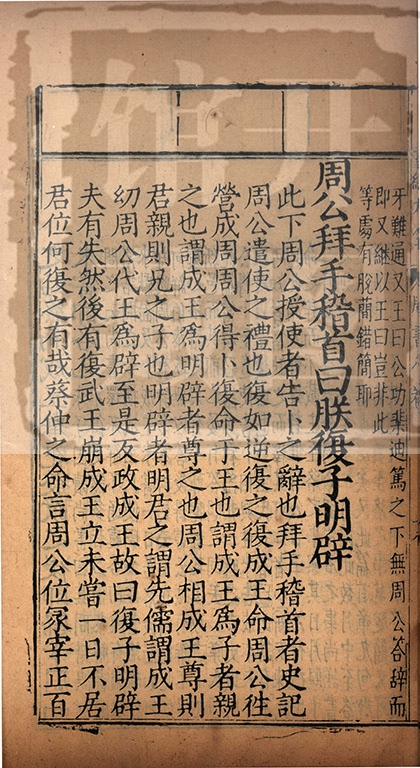 牙難通又王曰公功棐迪篤之下無周公答辭而
即又繼以王曰豈非此
等處有脫蕳錯簡耶
周公拜手稽首曰朕復子明辟
此下周公授使者告卜之辭也拜手稽首者史記
周公遣使之禮也復如逆復之復成王命周公徃
營成周周公得卜復命于王也謂成王爲子者親
之也謂成王爲明辟者尊之也周公相成王尊則
君親則兄之子也明辟者明君之謂先儒謂成王
幼周公代王爲辟至是反政成王故曰復子明辟
夫有失然後有復武王崩成王立未嘗一日不居
君位何復之有哉蔡仲之命言周公位冢宰正百